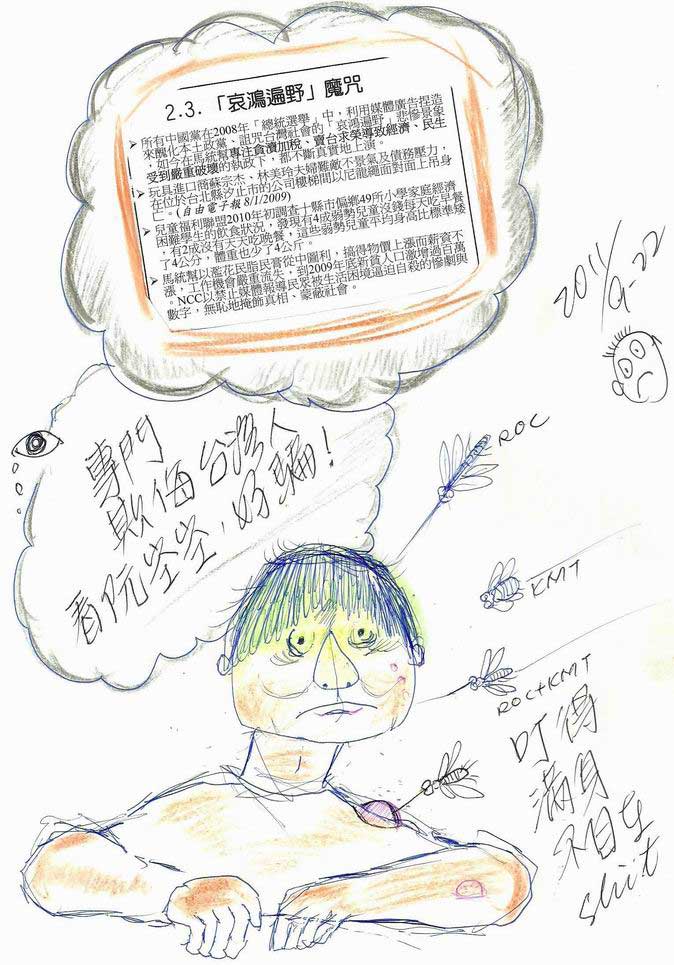 2.3.「哀鴻遍野」魔咒
所有中國黨在2008年「總統選舉」中，利用媒體廣告捏造
來醜化本土政黨、詛咒台灣社會的「哀鴻遍野」悲慘景象
，如今在馬統幫專注貪瀆加稅、賣台求榮導致經濟、民生
受到嚴重破壞的執政下，都不斷真實地上演。
玩具進口商蘇宗杰、林美玲夫婦罹敵不景氣及債務壓力，
在位於台北縣汐止市的公司樓梯間以尼龍繩面對面上吊身
亡。(自由電子報 8/1/2009)
兒童福利聯盟2010年初調查十縣市偏鄉49所小學家庭經濟
困難學生的飲食狀況，發現有4成弱勢兒童沒錢每天吃早餐
，有2成沒有天天吃晚餐，這些弱勢兒童平均身高比標準矮
了4公分，體重也少了4公斤。
馬統幫以濫花民脂民膏從中圖利，搞得物價上漲而薪資不
漲，工作機會嚴重流失，到2009年底新貧人口激增過百萬
。NCC以禁止媒體報導民眾被生活困境逼迫自殺的慘劇與
數字，無恥地掩飾真相、蒙蔽社會。
2011/9-22
專門
欺侮台灣人
看阮笨笨，好騙！
ROC
KMT
ROC+KMT
叮得
滿身
不自在
shit